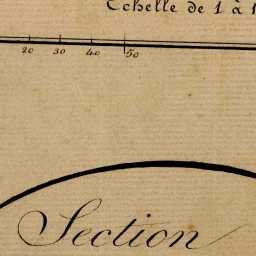 Echelle de 1 à 1
20 30 40 50
Section